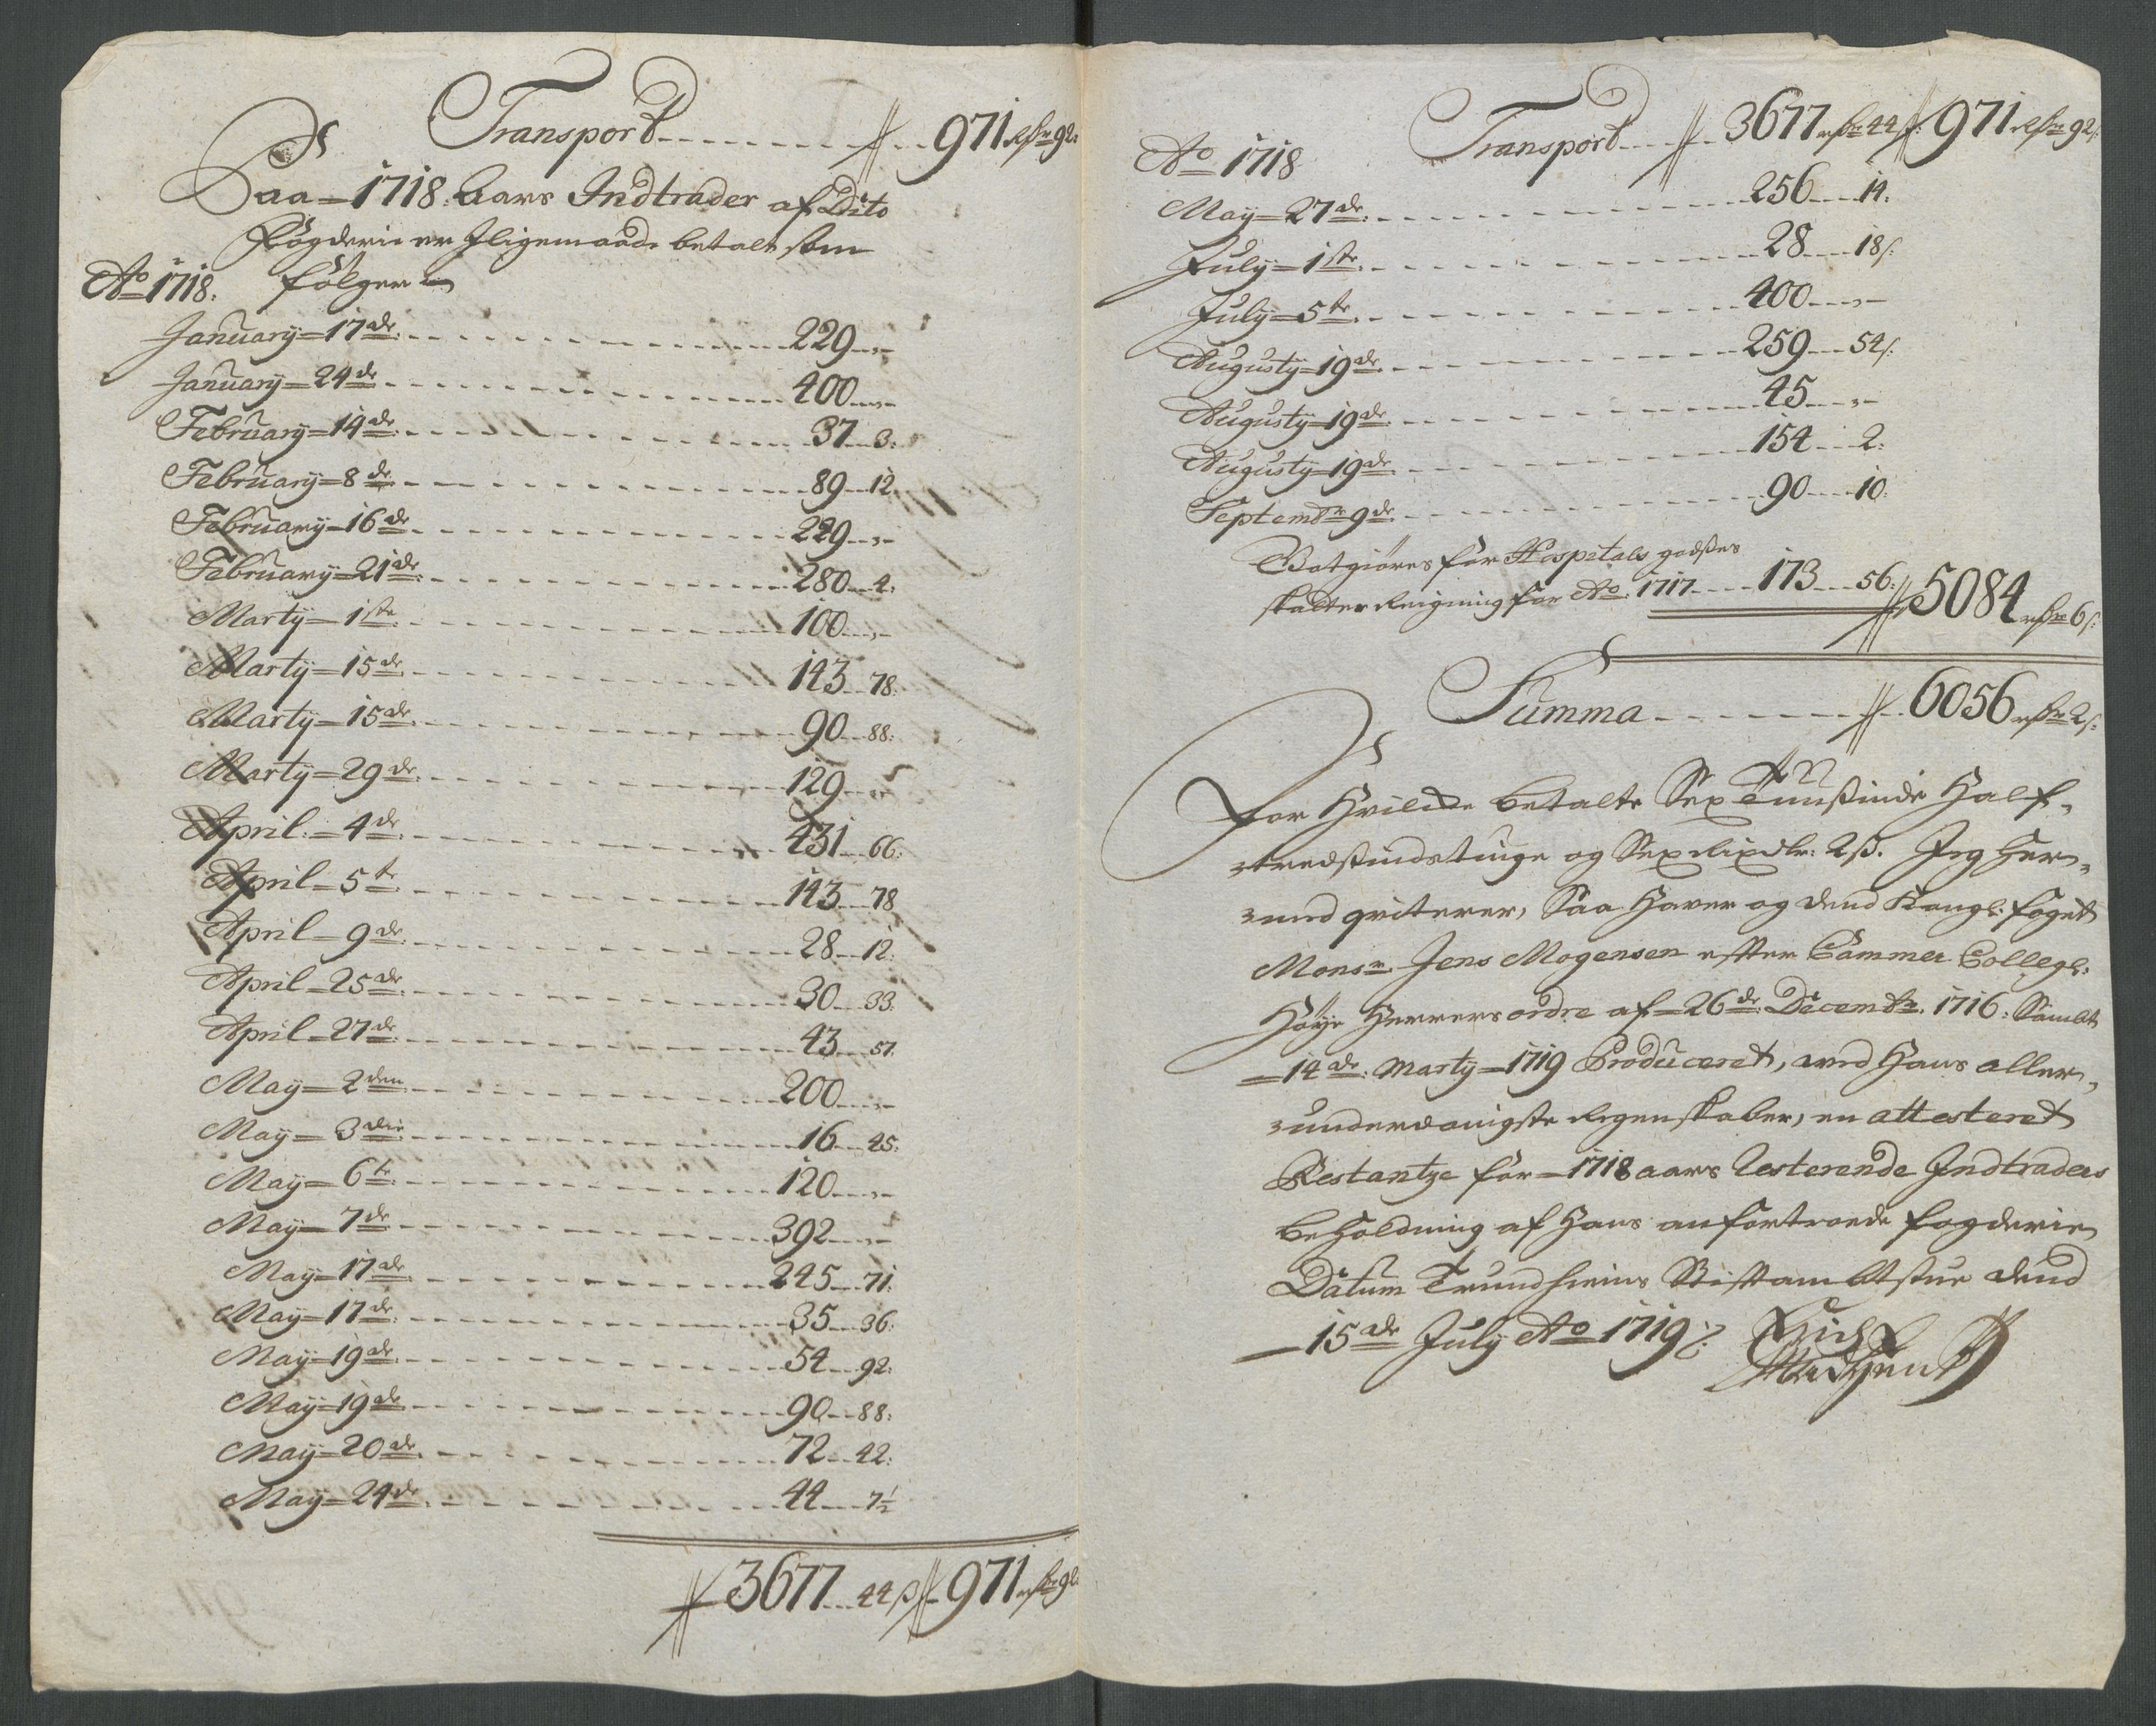 Transport 971 rdr 92
Saa 1718. Aars Indtrader af Dito
Fogderie er Iligemaade betalt som
Ao 1718. følger
January 17de 229
January 24de 400
February 14de 37 3:
February 8de 89 12
February 16de 229
February 21de 280 4:
Marty 1ste 100
Marty 15de 143 78:
Marty 15de 90 88:
Marty 29de 129
April 4de 431 66:
April 5te 143 78
April 9de 28 12:
April 25de 30 33:
April 27de 43 57
May 2den 200
May 3die 16 45:
May 6te 120
May 7de 392
May 17de 245 71:
May 17de 35 36:
May 19de 54 92:
May 19de 90 88:
May 20de 72 42:
May 24de 44 7½
3677 44 ß 971 rdr 92
Transport 3677 rdr 44 ß: 971 rdr 92 ß:
Ao 1718
May 27de 256 14:
July 1ste 28 18 ß:
July 5te 400
Augusty 19de 259 54 ß:
Augusty 19de 45
Augusty 19de 154 2:
Septembr 9de 90 10:
Godtgiøres for Hospitals godsets
skatter Reigning for Ao 1717 173 56: 5084 rdr 6 ß:
Summa 6056 rdr 2 ß:
For Hvilcke betalte Sex Tuusinde Half-
tredsindstiuge og Sex Rixdlr: 2 ß. Jeg Her-
med qviterer, Saa Haver og dend Kongl: foget
Monsr. Jens Mogensen efter Cammer Collegs:
Høye Herrers ordre af 26de Decembr. 1716: Samt
14de Marty 1719 Produceret, ved Hans aller-
underdanigste Regenskaber, en attesteret
Restantze for 1718 aars Resterende Indtraders
beholdning af Hans anfortroede fogderie
Datum Trundhiems Stiftambtstue dend
15de July Ao 1719